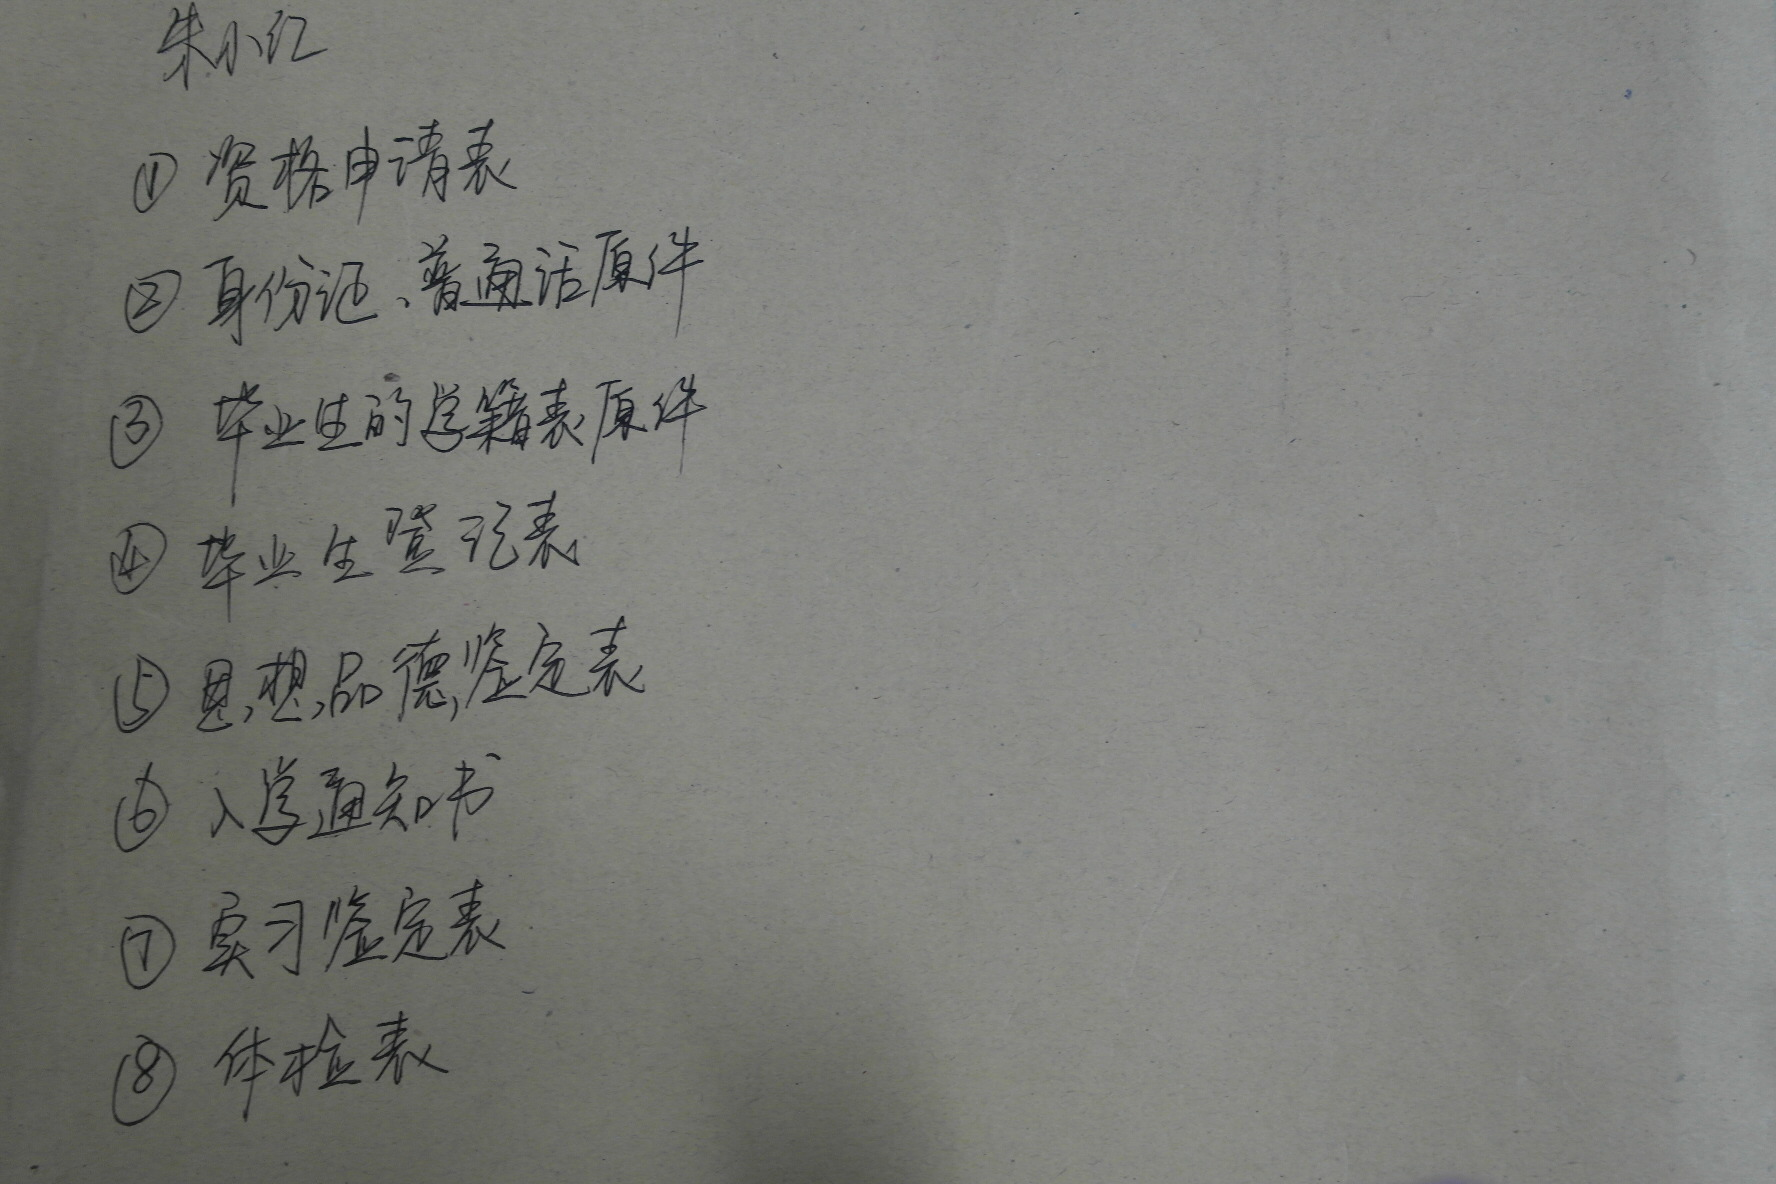 朱小红
① 资格申请表
② 身份证、普通话原件
③ 毕业生的学籍表原件
④ 毕业生登记表
⑤ 思想品德鉴定表
⑥ 入学通知书
⑦ 实习鉴定表
⑧ 体检表